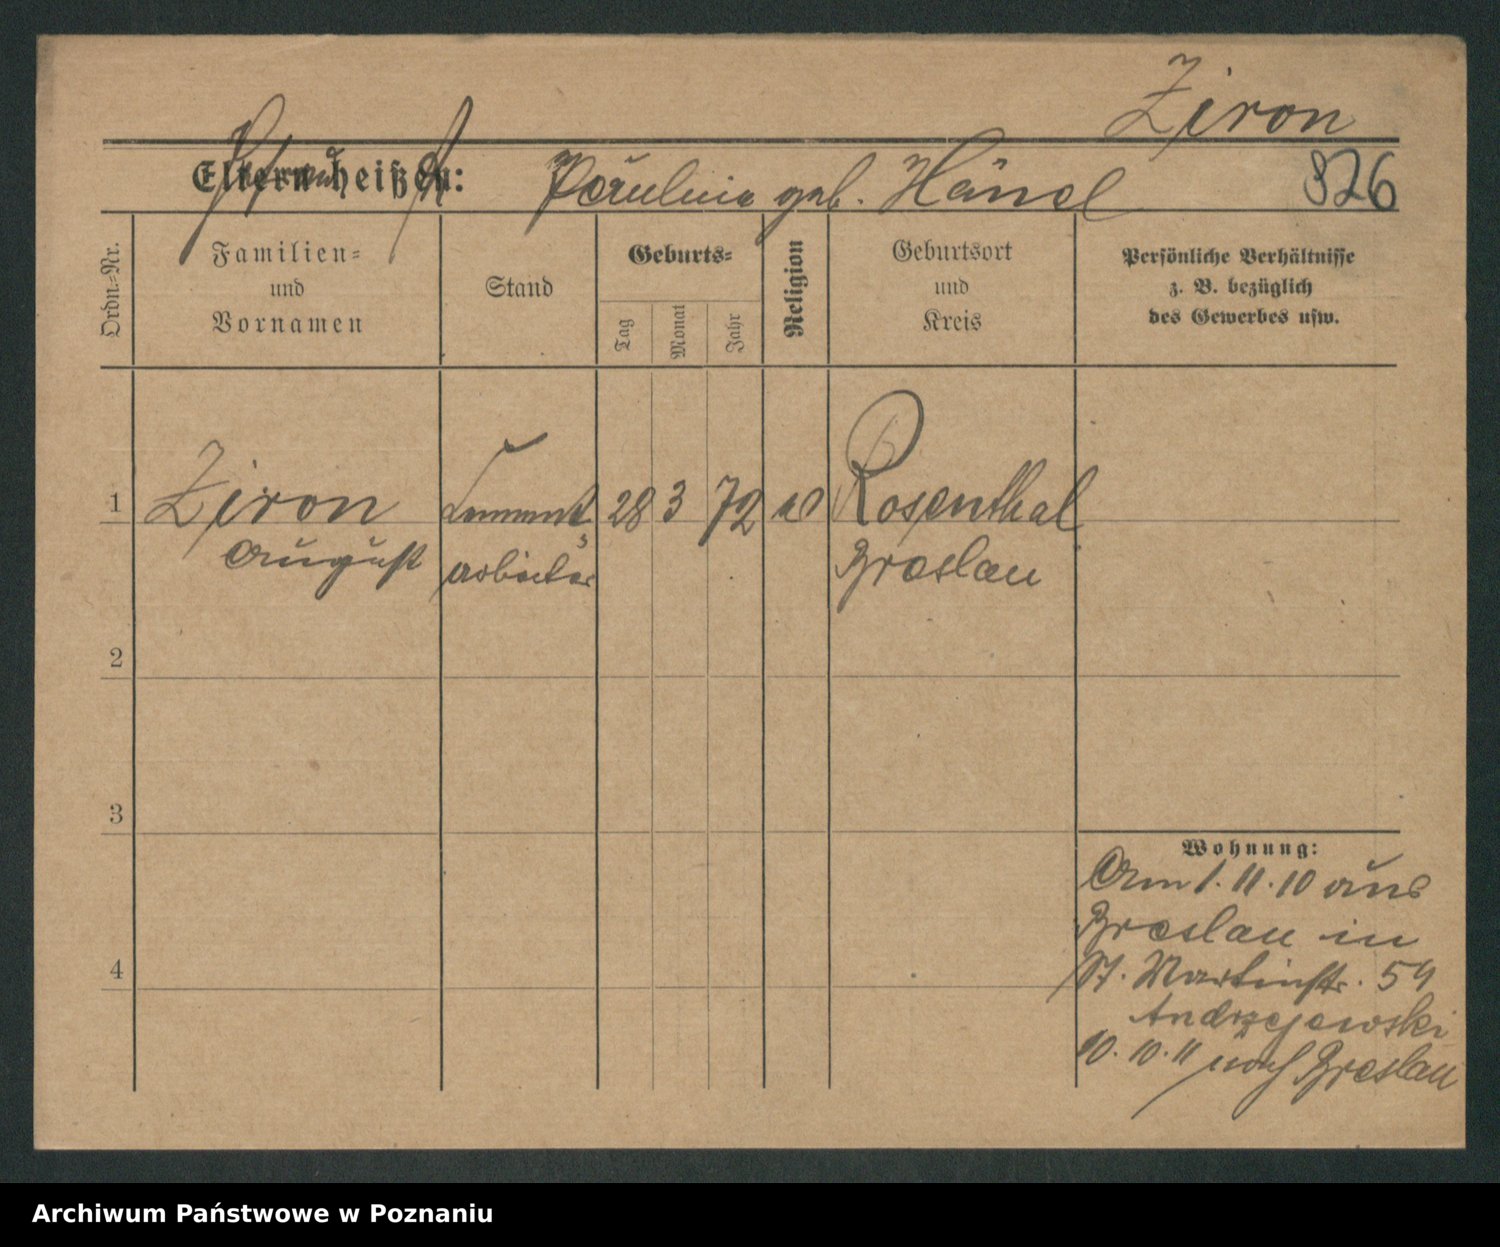 Ziron
Eltern heißen: Paulina geb. Hänel 826
Ordn.-Nr.
Familien-
und
Vornamen
Stand
Geburts-
Tag
Monat
Jahr
Religion
Geburtsort
und
Kreis
Persönliche Verhältnisse
z. B. bezüglich
des Gewerbes usw.
1 Ziron 28 3 72 Rosenthal
August arbeiter Breslau
2
3
4
Wohnung:
Am 1. 11. 10 aus
Breslau in
St. Martinstr. 54
Andrzejewski
10. 10. 11 nach Breslau
Archiwum Państwowe w Poznaniu